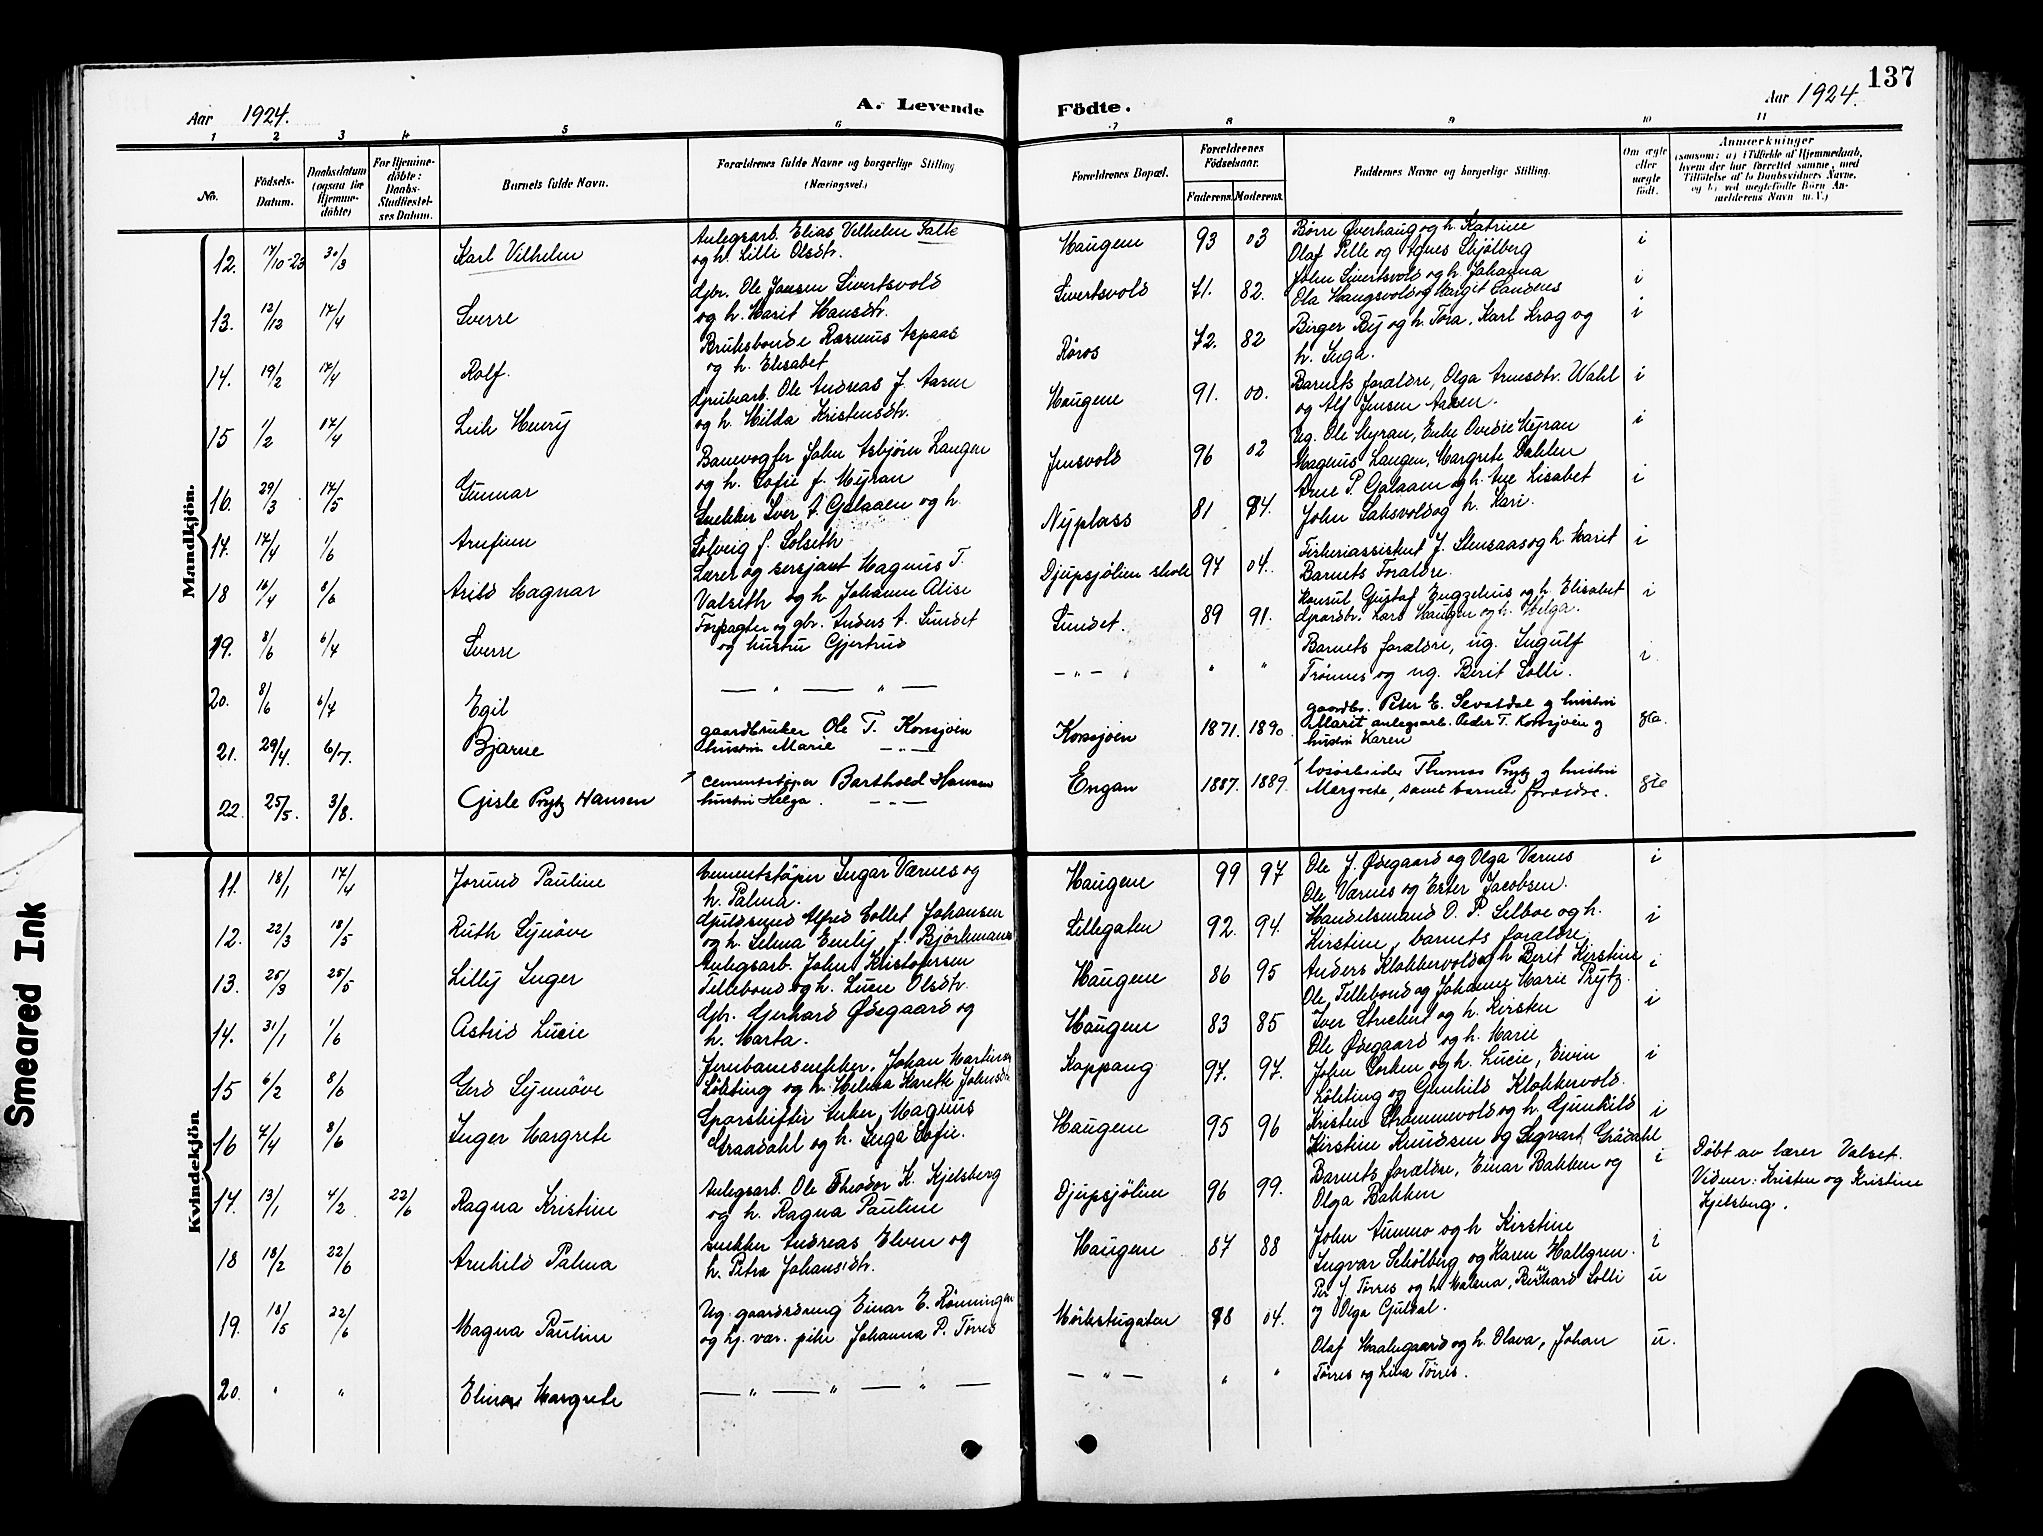 137
Aar 1924.
A. Levende
Födte.
Aar 1924.
1 2 3 4 5 6 7 8 9 10 11
No.
Födsels-Datum.
Daabsdatum (ogsaa for Hjemme-döbte)
For Hjemme-döbte: Daabs-Stadfæstel-ses Datum.
Barnets fulde Navn.
Forældrenes fulde Navne og borgerlige Stilling (Næringsvei.)
Forældrenes Bopæl.
Forældrenes Födselsaar.
Faderens. Moderens.
Faddernes Navne og borgerlige Stilling.
Om ægte eller uægte födt.
Anmærkninger
(saasom: a) i Tilfælde af Hjemmedaab,
hvem der har forrettet samme, med
Tilföielse af to Daabsvidners Navne,
og b) ved uægtefödte Börn An-
melderens Navn m. V.)
Mandkjön.
12. 17/10-23 30/3 Karl Vilhelm
Anlegsarb. Elias Vilhelm Salte
og h. Lilli Olsdtr.
Haugene 93 03
Børre Øverhaug og h. Katrine
Olaf Pelle og Agnes Skjølberg
i
13. 12/12 17/4 Sverre
Gbr. Ole Jonsen Sivertsvold
og h. Marit Hansdtr.
Sivertsvold 71. 82.
John Sivertsvold og h. Johanna
Ola Haugsvold og Margit Sandnes
i
14. 19/2 17/4 Rolf.
Bruksbonde Rasmus Aspaas
og h. Elisabet
Røros 72. 82
Birger By og h. Tora, Karl Krog og
h. Inga.
i
15 1/2 17/4 Leik Henry
Grubearb. Ole Andreas J. Aasen
og h. Hilda Kristensdtr.
Haugene 91. 00.
Barnets forældre, Olga Arnesdtr. Wahl
og Alf Jensen Aasen.
i
16. 29/3 17/5 Gunnar
Banevogter John Asbjørn Langen
og h. Sofie f. Myran
Jensvold 96 02
Ug. Ole Myran, Enke Ovedie Myran
Magnus Langen, Margrete Dahlen
i
17. 17/4 1/6 Arnfinn
Snekker Iver A. Galaaen og h.
Solveig f. Solseth
Nyplass 81 84.
Arne P. Galaaen og h. Ane Lisabet
John Saksvold og h. Kari.
i
18 16/4 8/6 Arild Magnar
Lærer og sersjant Magnus T.
Valseth og h. Johanne Alise
Djupsjølien skole 97 04.
Fiskeriassistent J. Stensaas og h. Marit
Barnets Foraldre.
i
19. 8/6 6/7 Sverre
Forpagter og gbr. Anders A. Sundet
og hustru Gjertrud
Sundet. 89 91.
Konsul Gustaf Engzelius og h. Elisabet
Gpardbr. Lars Haugen og h. Helga.
i
20. 8/6 6/7 Egil
— " — " —
— " — " " "
Barnets forældre, ug. Ingulf
Trønnes og ug. Berit Solli.
i.
21. 29/4. 6/7. Bjarne
gaardbruker Ole T. Korssjøen
hustru Marie — " —
Korssjøen 1871. 1890.
gaardbr. Peter E. Sevatdal og hustru
Marit anlegsarb. Peder T. Korssjøen og
hustru Karen
gte.
22. 25/5. 3/8. Gisle Prytz Hansen
cementstøper Barthold Hansen
hustru Helga. — " —
Engan 1887. 1889.
løsarbeider Thomas Prytz og hustru
Margrete, samt barnets forældre.
gte
Kvindekjön.
11. 18/1 17/4 Jorund Pauline
Cementstøper Ingar Værnes og
h. Palma.
Haugene 99 97
Ole J. Ødegaard og Olga Værnes
Ole Værnes og Ester Jacobsen.
i
12. 22/3 18/5 Ruth Synøve
Guldsmed Alfred Collet Johansen
og h. Selma Emily f. Bjørkmann
Lillegaten 92. 94.
Handelsmand O. P. Selboe og h.
Kirstine, barnets foraldre.
i
13. 25/3 25/5 Lilly Inger
Anlegsarb. John Kristofersen
Tellebond og h. Lucie Olsdtr.
Haugene 86 95
Anders Klokkervold og h Berit Kirstine
Ole Tellebond og Johanne Marie Prytz.
i
14. 31/1 1/6 Astrid Lucie
Gbr. Gerhard Ødegaard og
h. Marta.
Haugene 83 85
Iver Strickert og h. Kirsten
Ole Ødegaard og h. Marie
i
15 6/2 8/6 Gerd Synnøve
Jernbanesnekker, Johan Martinsen
Løkting og h. Helma Karette Johnsdtr
Kappang 97. 97.
John Dorken og h. Lucie, Eivin
Løkting og Gunhild Klokkervold.
i
16 7/4 8/6 Inger Margrete
Sporskifter Anker Magnus
Graadahl og h. Inga Sofie.
Haugene 95 96
Kristen Strømmevold og h. Gunhild
Kirstine Knudsen og Sigvart Grådahl
i
17. 13/1 4/2 22/6 Ragna Kristine
Anlegsarb. Ole Theodor K. Kjelsberg
og h. Ragna Pauline
Djupsjølien 96 99.
Barnets forældre, Einar Bakken og
Olga Bakken
i
Døbt av lærer Valset.
Vidner: Kristen og Kristine
Kjelsberg.
18 18/2 22/6 Arnhild Palma
snekker Andreas Elven og
h. Petra Johansdtr.
Haugene 87 88
John Aunmo og h Kirstine
Ingvar Schølberg og Karen Hallgren.
i
19. 18/5 22/6 Magna Pauline
Ug. gaardsdreng Einar E. Rønningen
og hj. vær. pike Johanna P. Tørres
Mørkstugaten 98 04.
Per J. Tørres og h. Malena, Reinhard Solli
og Olga Guldal.
u
20. " " Elinor Margrete
— " — " — " —
— " — " "
Olaf Haalegaard og h. Olava, Johan
Tørres og Lina Tørres.
u.
Smeared Ink